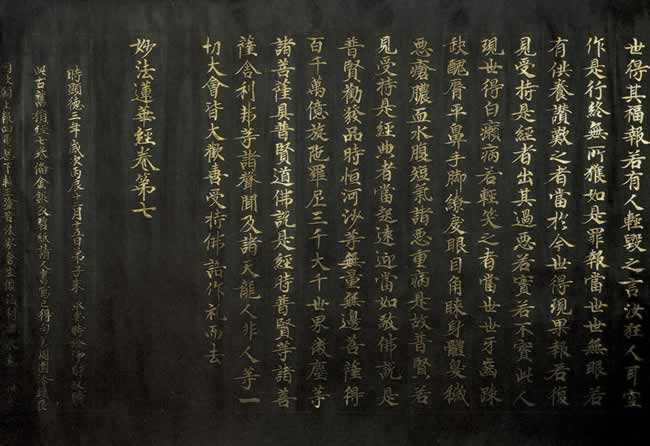 世得其福報若有人輕毀之言汝狂人耳空
作是行終無所獲如是罪報當世世無眼若
有供養讚歎之者當於今世得現果報若復
見受持是經者出其過惡若實若不實此人
現世得白癩病若輕笑之者當世世牙齒踈
缺醜脣平鼻手脚繚戾眼目角睞身體臭穢
惡瘡膿血水腹短氣諸惡重病是故普賢若
見受持是經典者當起遠迎當如敬佛說是
普賢勸發品時恒河沙等無量無邊菩薩得
百千萬億旋陁羅尼三千大千世界微塵等
諸菩薩具普賢道佛說是經時普賢等諸菩
薩舍利弗等諸聲聞及諸天龍人非人等一
切大會皆大歡喜受持佛語作禮而去
妙法蓮華經卷第七
時顯德三年歲次丙辰十二月十五日弟子朱